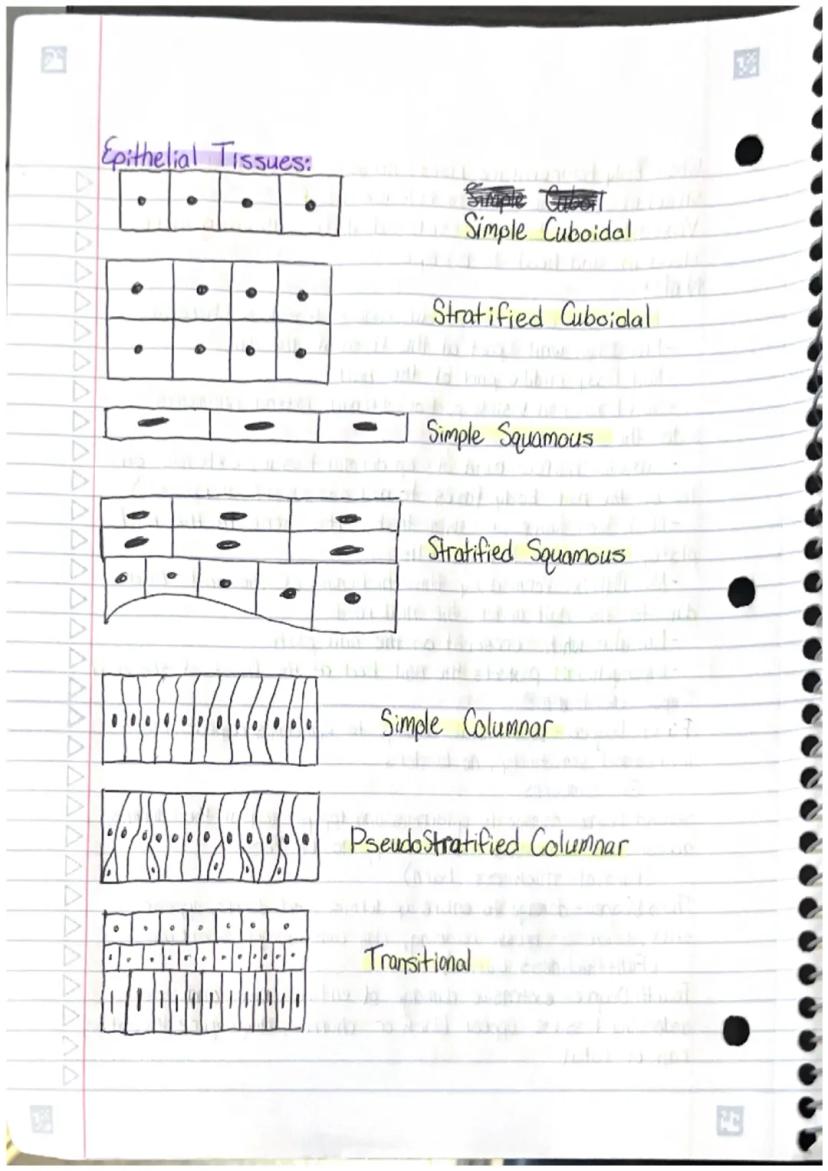 Epithelial Tissues:
Simple Cuboidal
Stratified Cuboidal
Simple Squamous
Stratified Squamous
Simple Columnar
PseudoStratified Columnar
Transitional